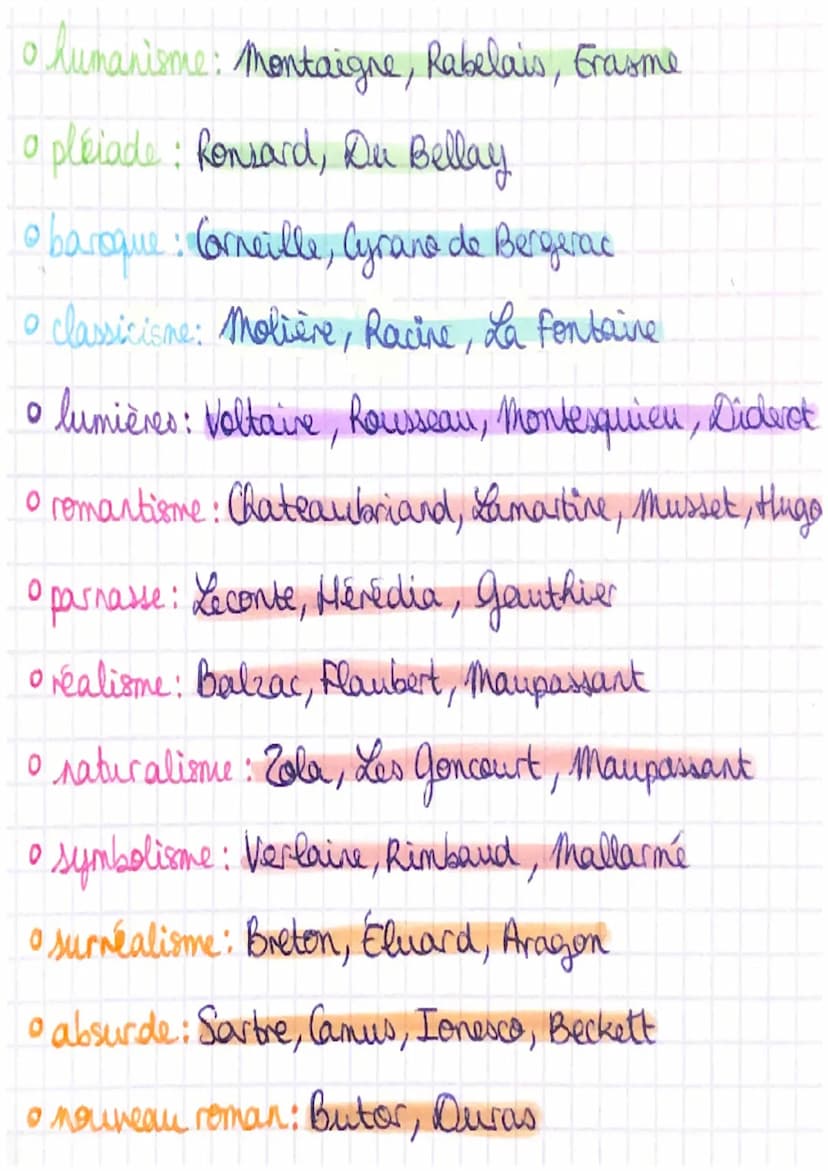 o humanisme : Montaigne, Rabelais, Erasme
o pléiade : Ronsard, Du Bellay
o baroque : Corneille, Cyrano de Bergerac
o classicisme : Molière, Racine, La Fontaine
o lumières : Voltaire, Rousseau, Montesquieu, Diderot
o romantisme : Chateaubriand, Lamartine, Musset, Hugo
o parnasse : Leconte, Hérédia, Gauthier
o réalisme : Balzac, Flaubert, Maupassant
o naturalisme : Zola, Les Goncourt, Maupassant
o symbolisme : Verlaine, Rimbaud, Mallarmé
o surréalisme : Breton, Éluard, Aragon
o absurde : Sartre, Camus, Ionesco, Beckett
o nouveau roman : Butor, Duras